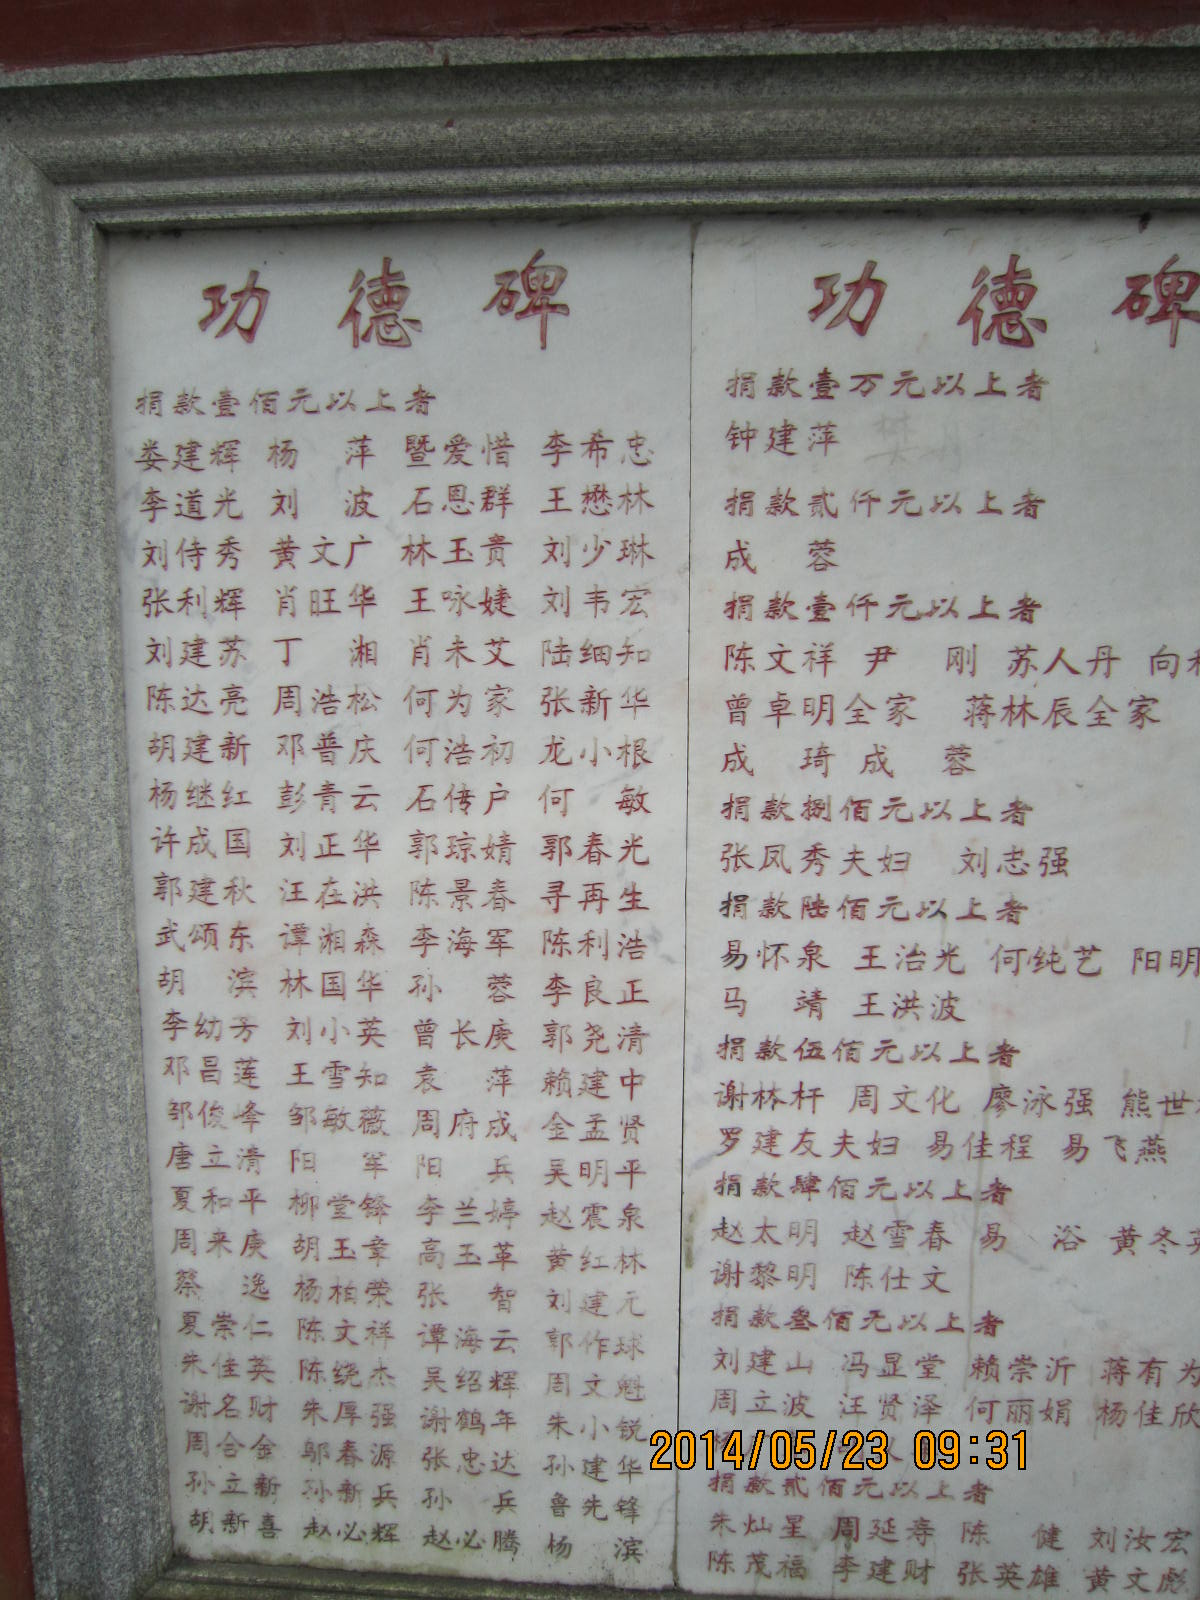 功德碑
捐款壹佰元以上者
娄建辉 杨萍 暨爱惜 李希忠
李道光 刘波 石恩群 王懋林
刘侍秀 黄文广 林玉贵 刘少琳
张利辉 肖旺华 王咏婕 刘韦宏
刘建苏 丁湘 肖未艾 陆细知
陈达亮 周浩松 何为家 张新华
胡建新 邓普庆 何浩初 龙小根
杨继红 彭青云 石传户 何敏
许成国 刘正华 郭琼婧 郭春光
郭建秋 汪在洪 陈景春 寻再生
武颂东 谭湘森 李海军 陈利浩
胡滨 林国华 孙蓉 李良正
李幼芳 刘小英 曾长庚 郭尧清
邓昌莲 王雪知 袁萍 赖建中
邹俊峰 邹敏薇 周府成 金孟贤
唐立清 阳军 阳兵 吴明平
夏和平 柳堂锋 李兰婷 赵震泉
周来庚 胡玉章 高玉革 黄红林
蔡逸 杨柏荣 张智 刘建元
夏崇仁 陈文祥 谭海云 郭作球
朱佳英 陈绕杰 吴绍辉 周文魁
谢名财 朱厚强 谢鹤年 朱小锐
周合金 邬春源 张忠达 孙建华
孙立新 孙新兵 孙兵 鲁先锋
胡新喜 赵必辉 赵必腾 杨滨
功德碑
捐款壹万元以上者
钟建萍
捐款贰仟元以上者
成蓉
捐款壹仟元以上者
陈文祥 尹刚 苏人丹 向
曾卓明全家 蒋林辰全家
成琦 成蓉
捐款捌佰元以上者
张凤秀夫妇 刘志强
捐款陆佰元以上者
易怀泉 王治光 何纯艺 阳明
马靖 王洪波
捐款伍佰元以上者
谢林杆 周文化 廖泳强 熊世
罗建友夫妇 易佳程 易飞燕
捐款肆佰元以上者
赵太明 赵雪春 易浴 黄冬英
谢黎明 陈仕文
捐款叁佰元以上者
刘建山 冯显堂 赖崇沂 蒋有为
周立波 汪贤泽 何丽娟 杨佳欣
2014/05/23 09:31
捐款贰佰元以上者
朱灿星 周延寿 陈健 刘汝宏
陈茂福 李建财 张英雄 黄文彪